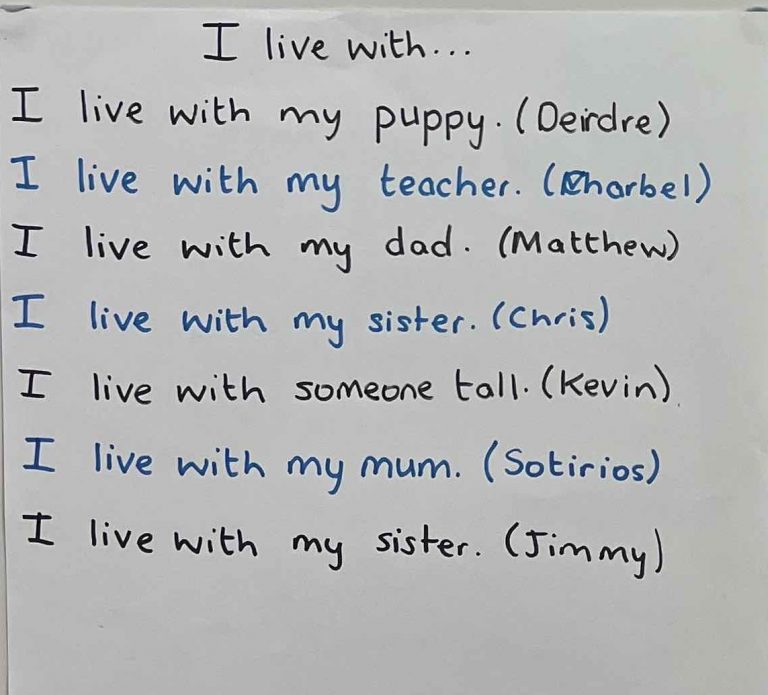 I live with...
I live with my puppy. (Deirdre)
I live with my teacher. (Charbel)
I live with my dad. (Matthew)
I live with my sister. (Chris)
I live with someone tall. (Kevin)
I live with my mum. (Sotirios)
I live with my sister. (Jimmy)